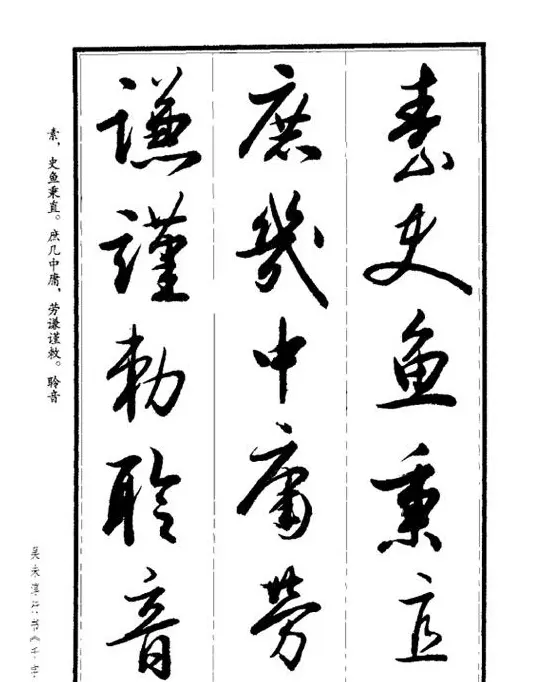 素史鱼秉直
庶幾中庸劳
謙謹勅聆音
素，史鱼秉直。庶几中庸，劳谦谨敕。聆音
吴未淳行书《千字